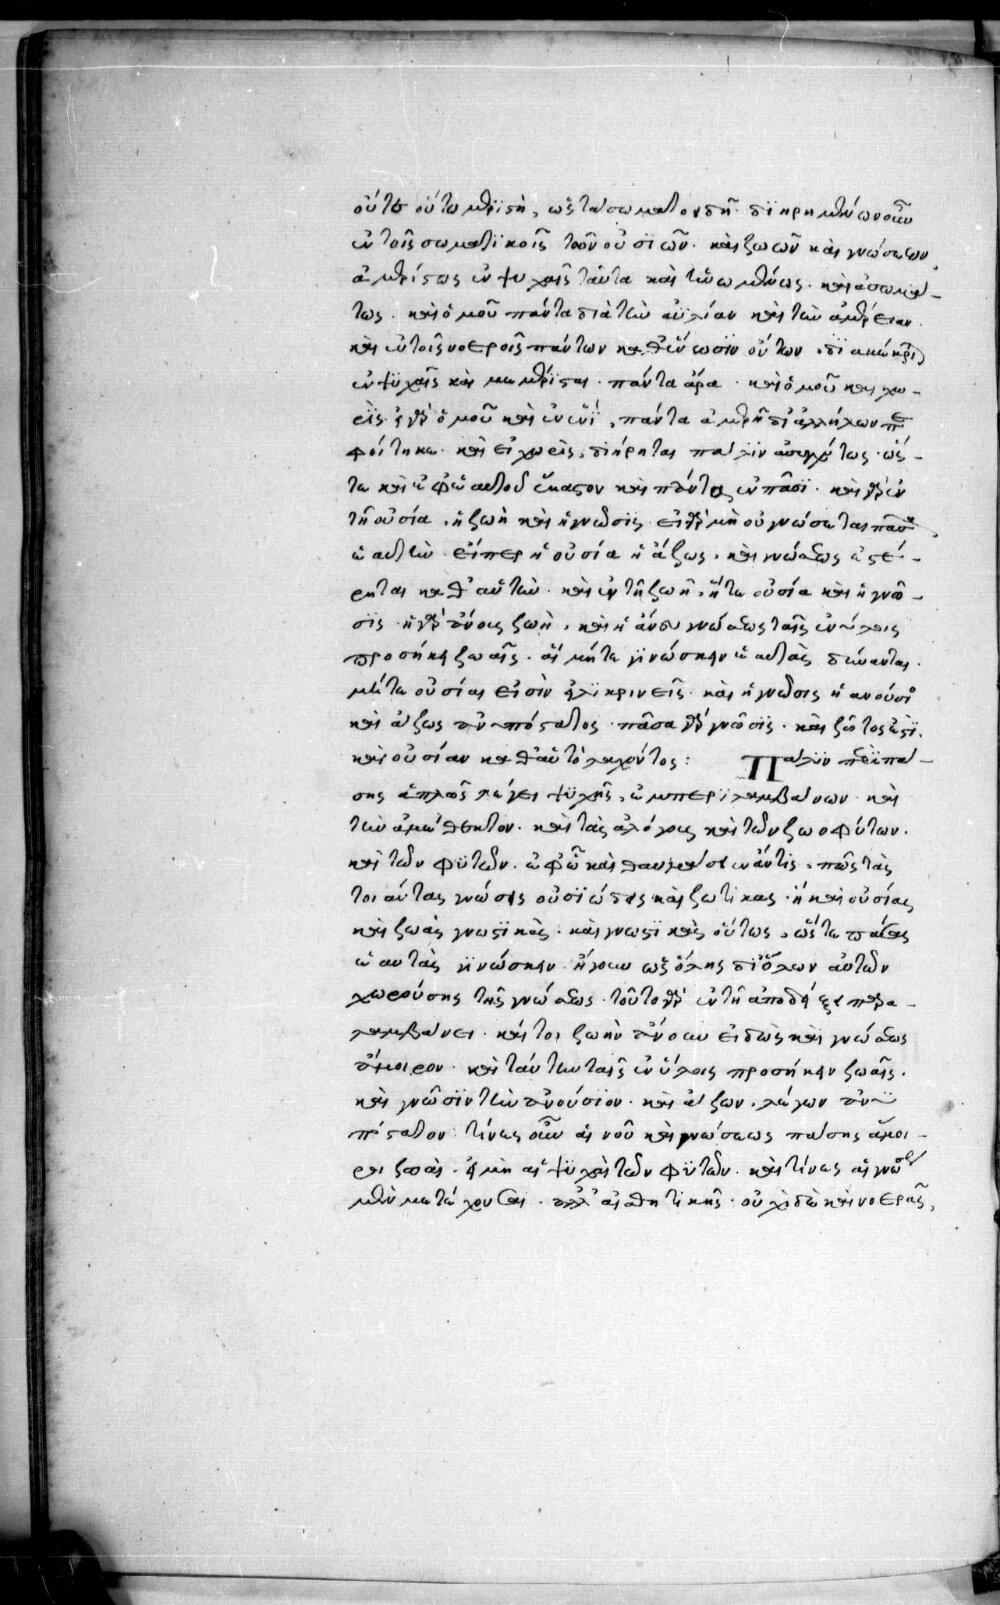 οὔτε οὕτω μεριστὴ, ὡς τὰ σωματοειδῆ. διῃρημένων οὖν
ἐν τοῖς σωματικοῖς τῶν οὐσιῶν. καὶ ζωῶν καὶ γνώσεων,
ἀμερίστως ἐν ψυχαῖς ταῦτα καὶ ἡνωμένως. καὶ ἀσωμά-
τως. καὶ ὁμοῦ πάντα διὰ τὴν ἀϋλίαν καὶ τὴν ἀμέρειαν.
καὶ ἐν τοῖς νοεροῖς πάντων καθ' ἕνωσιν ὄντων, διακέκριται
ἐν ψυχαῖς καὶ μεμέρισται. πάντα ἄρα. καὶ ὁμοῦ καὶ χω-
ρίς. εἰ γὰρ ὁμοῦ καὶ ἐν ἑνί, πάντα ἀμερῆ δι' ἀλλήλων πε
φοίτηκε. καὶ εἰ χωρὶς, διῄρηται πάλιν ἀσυγχύτως. ὥσ-
τε καὶ ἐφ' ἑαυτοῦ ἕκαστον καὶ πάντα ἐν πᾶσι. καὶ γὰρ ἐν
τῇ οὐσία, ἡ ζωὴ καὶ ἡ γνῶσις. εἰ γὰρ μὴ οὐ γνώσεται πᾶσα
ἑαυτὴν. εἴπερ ἡ οὐσία ἡ ἄζως, καὶ γνώσεως ἐστέ-
ρηται καθ' αὑτὴν. καὶ ἐν τῇ ζωῇ, ἥτε οὐσία καὶ ἡ γνῶ-
σις. ἡ γὰρ ἄνους ζωὴ, καὶ ἡ ἄνευ γνώσεως ταῖς ἐνύλοις
προσήκει ζωαῖς. αἳ μήτε γινώσκειν ἑαυτὰς δύνανται.
μήτε οὐσίαι εἰσὶν εἰλικρινεῖς. καὶ ἡ γνῶσις ἡ ἀνούσιο
καὶ ἄζως ἀνυπόστατος. πᾶσα γὰρ γνῶσις. καὶ ζῶντος ἐστὶ.
καὶ οὐσίαν καθ' αὑτὸ λαχόντος: Πάλιν περὶ πά-
σης ἁπλῶς λέγει ψυχῆς, ἐμπεριλαμβάνων. καὶ
τὴν ἀμέθεκτον. καὶ τὰς ἀλόγους καὶ τῶν ζωοφύτων.
καὶ τῶν φυτῶν. ἐφ' ᾧ καὶ θαυμάσειεν ἄν τις, πῶς τὰς
τοιαύτας γνώσεις οὐσιώδεις καὶ ζωτικας. ἢ καὶ οὐσίας
καὶ ζωὰς γνωστικὰς. καὶ γνωστικὰς οὕτως, ὥστε πάσας
ἑαυτὰς γινώσκειν. ἤγουν ὡς ὅλης δι' ὅλων αὐτῶν
χωρούσης τῆς γνώσεως. τοῦτο γὰρ ἐν τῇ ἀποδείξει παρα-
λαμβάνει. καίτοι ζωὴν ἄνουν εἰδὼς καὶ γνώσεως
ἄμοιρον. καὶ ταύτην ταῖς ἐνύλοις προσήκειν ζωαῖς.
καὶ γνῶσιν τὴν ἀνούσιον. καὶ ἄζων. λέγων ἀνυ
πόστατον. τίνες οὖν αἱ νοῦ καὶ γνώσεως πάσης ἄμοι-
ροι ζωαὶ. εἰ μὴ αἱ ψυχαὶ τῶν φυτῶν. καὶ τίνες αἱ γνώσεως
μὲν μετέχουσαι. ἀλλ' αἰσθητικῆς. οὐχὶ δὲ καὶ νοερᾶς,